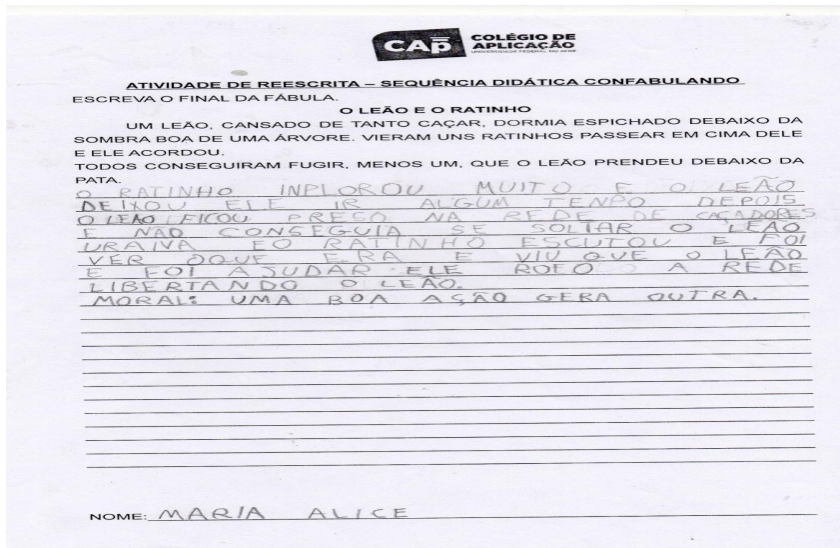 CAp COLÉGIO DE
APLICAÇÃO
ATIVIDADE DE REESCRITA – SEQUÊNCIA DIDÁTICA CONFABULANDO
ESCREVA O FINAL DA FÁBULA.
O LEÃO E O RATINHO
UM LEÃO, CANSADO DE TANTO CAÇAR, DORMIA ESPICHADO DEBAIXO DA
SOMBRA BOA DE UMA ÁRVORE. VIERAM UNS RATINHOS PASSEAR EM CIMA DELE
E ELE ACORDOU.
TODOS CONSEGUIRAM FUGIR, MENOS UM, QUE O LEÃO PRENDEU DEBAIXO DA
PATA.
O RATINHO INPLOROU MUITO E O LEÃO
DEIXOU ELE IR ALGUM TENPO DEPOIS
O LEÃO FICOU PRESO NA REDE DE CAÇADORES
E NÃO CONSEGUIA SE SOLTAR O LEÃO
URAIVA EO RATINHO ESCUTOU E FOI
VER OQUE ERA E VIU QUE O LEÃO
E FOI AJUDAR ELE ROEO A REDE
LIBERTANDO O LEÃO.
MORAL: UMA BOA AÇÃO GERA OUTRA.
NOME: MARIA ALICE